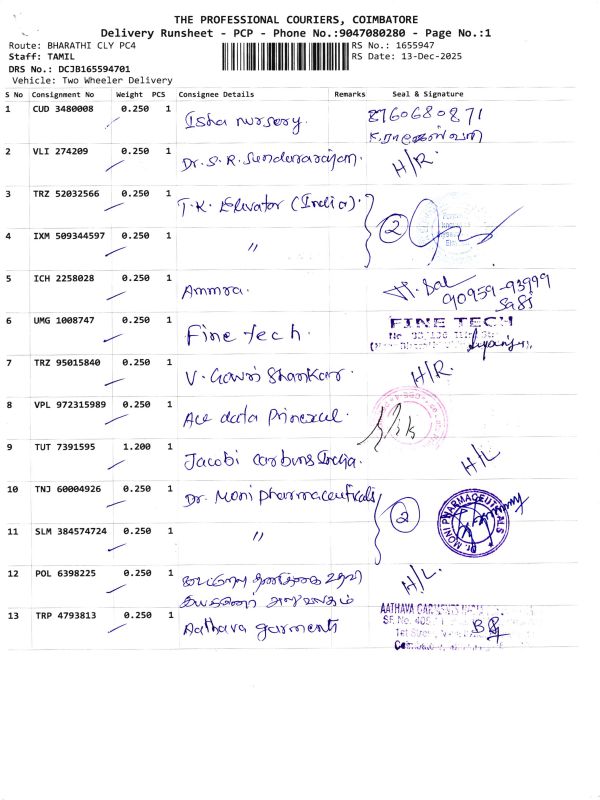 THE PROFESSIONAL COURIERS, COIMBATORE
Delivery Runsheet - PCP - Phone No.:9047080280 - Page No.:1
Route: BHARATHI CLY PC4
RS No.: 1655947
Staff: TAMIL
RS Date: 13-Dec-2025
DRS No.: DCJB165594701
Vehicle: Two Wheeler Delivery
S No Consignment No Weight PCS Consignee Details Remarks Seal & Signature
1 CUD 3480008 0.250 1 Isha nursery. 8760680871
2 VLI 274209 0.250 1 Dr. S. R. Sundurarajan. H/R.
3 TRZ 52032566 0.250 1 T.K. Elevator (India).
2
4 IXM 509344597 0.250 1 "
5 ICH 2258028 0.250 1 Ammra. 90959-93999
Sasi
6 UMG 1008747 0.250 1 Fine tech. FINE TECH
7 TRZ 95015840 0.250 1 V. Gowri Shankar. H/R.
8 VPL 972315989 0.250 1 Ace data
9 TUT 7391595 1.200 1 Jacobi carbons India. H/L
10 TNJ 60004926 0.250 1 Dr. Moni pharmaceuticals
2
Dr. MONI PHARMACEUTICALS
11 SLM 384574724 0.250 1 "
12 POL 6398225 0.250 1 H/L.
13 TRP 4793813 0.250 1 Aathava garments AATHAVA GARMENTS
SF. No.